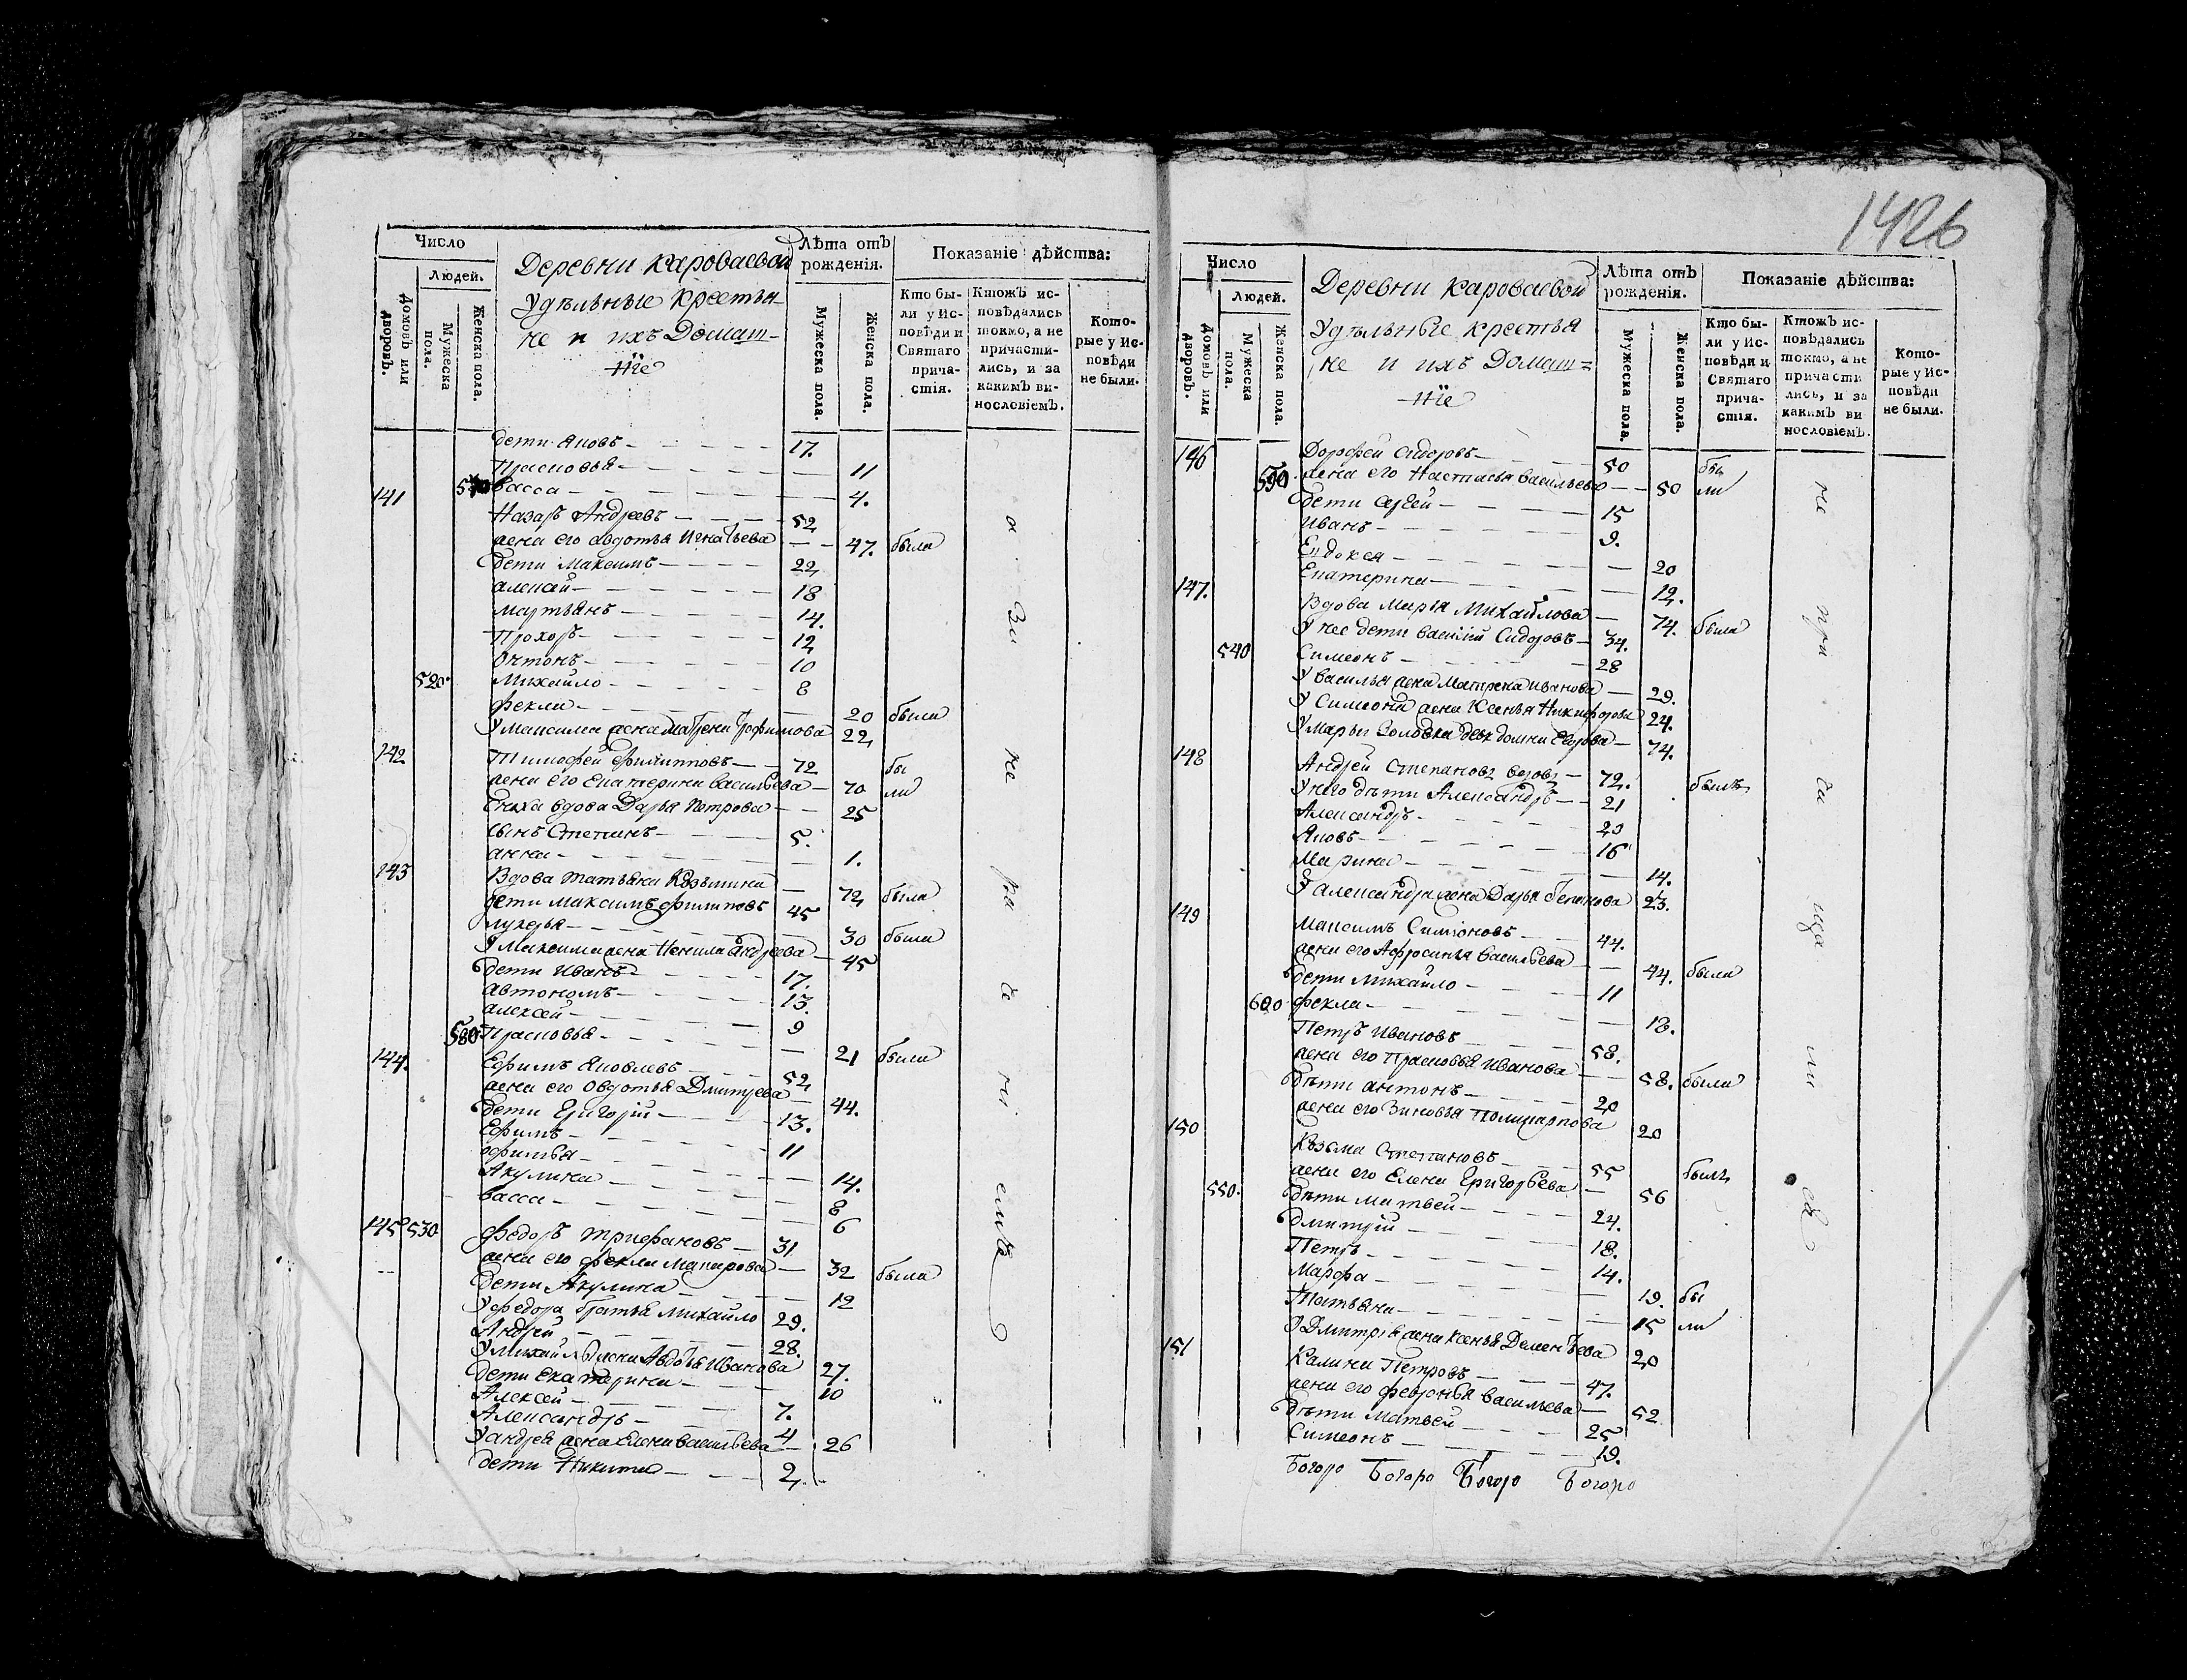 Число
Людей.
Домовъ или дворовъ.
Мужеска пола.
Женска пола.
Деревни Кароваевой
Удѣльные крестья-
не и ихъ Домаш-
ніе
Лѣта отъ рожденія.
Мужеска пола.
Женска пола.
Показаніе дѣйства:
Кто бы-
ли у Ис-
повѣди и
Святаго
прича-
стія.
Ктожъ ис-
повѣдались
токмо, а не
причасти-
лись, и за
какимъ ви-
нословіемъ.
Кото-
рые у Ис-
повѣди
не были.
дети Яковъ 17.
Прасковья 11
Васса 4.
141
Назаръ Андреевъ 52
жена его авдотья Игнатьева 47. была
Дети Максимъ 22
алексей 18
мартьянъ 14.
Прохоръ 12
Октонъ 10
520. Михайло 8
фекла 20 были
У Максима жена матрена Трофимова 22
142 Тимофей Филипповъ 72 бы
жена его Екатерина васильева 70 ли
сноха вдова Дарья Петрова 25
сынъ Степанъ 5.
анна 1.
143 Вдова татьяна Козьмина 72 была
дети максимъ филиповъ 45
лукерья 30 были
У Максима жена Ненила андреева 45
дети Иванъ 17.
автономъ 13.
алексей 9
580 Прасковья 21 были
144. Ефимъ Яковлевъ 52
жена его Овдотья Дмитрева 44.
дети Григорій 13.
Ефимъ 11
офимья 14.
Акулина 8
васса 6
145 530 федоръ трифановъ 31
жена его фекла Макарова 32 была
Дети Акулина 12
У федора братья михайло 29.
Андрей 28.
У михайлы жена Авдотья Иванова 27.
дети Екатерина 10
Алексей 7.
Александръ 4
У андрея жена Елена васильева 26
дети Никита 2.
1426
Число
Людей.
Домовъ или дворовъ.
Мужеска пола.
Женска пола.
Деревни Кароваевой
Удѣльные крестья
не и ихъ Домаш=
ніе
Лѣта отъ рожденія.
Мужеска пола.
Женска пола.
Показаніе дѣйства:
Кто бы-
ли у Ис-
повѣди и
Святаго
прича-
стія.
Ктожъ ис-
повѣдались
токмо, а не
причасти
лись, и за
какимъ ви
нословіемъ.
Кото-
рые у Ис-
повѣди
не были.
146 Дорофей Сидоровъ 50 бы
590 жена его Настасья васильева 50 ли
дети Сергей 15
Иванъ 9.
Евдокея 20
Екатерина 12.
147. Вдова Марья Михайлова 74. была
У нее дети василий Сидоровъ 34.
540 Симеонъ 28
У василья жена Матрена иванова 29.
У Симеона жена Ксенья Никифорова 24.
У Марьи Золовка девка домна Егорова 74.
148 Андрей Степановъ вдовъ 72. былъ
У него дѣти Александръ 21
Александръ 20
Яковъ 16
Марина 14.
У александра жена Дарья Степанова 23.
149 Максимъ Симіоновъ 44.
жена его Афросинья васильева 44. были
дети Михайло 11
600 фекла 18.
Петръ Ивановъ 58.
жена его Прасковья Иванова 58. были
дѣти антонъ 20
жена его Зиновья Поликарпова 20
150 Козьма Степановъ 55 былъ
жена его Елена Григорьева 56
550. дѣти матвей 24.
дмитрій 18.
Петръ 14.
Марфа 19. бы
Татьяна 15 ли
У Дмитрія жена ксенья Дементьева 20
151 Калина Петровъ 47.
жена его февронья васильева 52
дѣти Матвей 25
Симеонъ 19.
Богоро Богоро Богоро Богоро